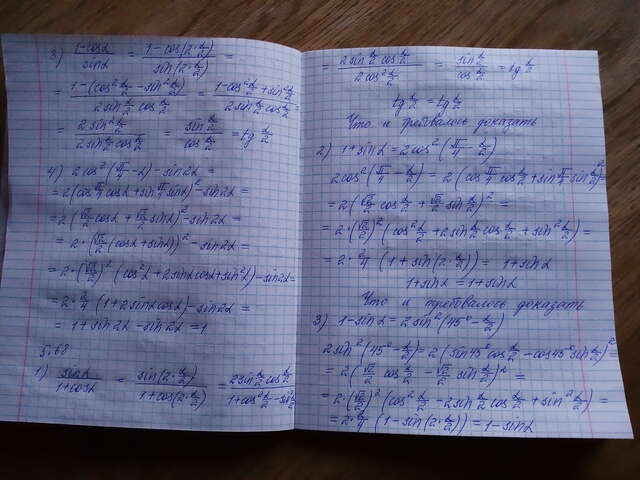 3) (1-cosα)/(sinα) = (1-cos(2·α/2))/(sin(2·α/2)) =
= (1-(cos²α/2 - sin²α/2))/(2sin α/2 cos α/2) = (1-cos²α/2 + sin²α/2)/(2sin α/2 cos α/2) =
= (2sin²α/2)/(2sin α/2 cos α/2) = (sin α/2)/(cos α/2) = tg α/2
4) 2cos²(π/4 - α) - sin2α =
= 2(cos π/4 cosα + sin π/4 sinα)² - sin2α =
= 2(√2/2 cosα + √2/2 sinα)² - sin2α =
= 2·(√2/2 (cosα + sinα))² - sin2α =
= 2·(√2/2)² (cos²α + 2sinαcosα + sin²α) - sin2α =
= 2·2/4 (1+2sinαcosα) - sin2α =
= 1+sin2α - sin2α = 1
5.68
1) (sinα)/(1+cosα) = (sin(2·α/2))/(1+cos(2·α/2)) = (2sin α/2 cos α/2)/(1+cos²α/2 - sin²
= (2sin α/2 cos α/2)/(2cos²α/2) = (sin α/2)/(cos α/2) = tg α/2
tg α/2 = tg α/2
Что и требовалось доказать
2) 1+sinα = 2cos²(π/4 - α/2)
2cos²(π/4 - α/2) = 2(cos π/4 cos α/2 + sin π/4 sin α/2)² =
= 2(√2/2 cos α/2 + √2/2 sin α/2)² =
= 2·(√2/2)² (cos²α/2 + 2sin α/2 cos α/2 + sin²α/2) =
= 2·2/4 (1+sin(2·α/2)) = 1+sinα
1+sinα = 1+sinα
Что и требовалось доказать
3) 1-sinα = 2sin²(45° - α/2)
2sin²(45° - α/2) = 2(sin45° cos α/2 - cos45° sin α/2)² =
= 2(√2/2 cos α/2 - √2/2 sin α/2)² =
= 2·(√2/2)² (cos²α/2 - 2sin α/2 cos α/2 + sin²α/2) =
= 2·2/4 (1-sin(2·α/2)) = 1-sinα